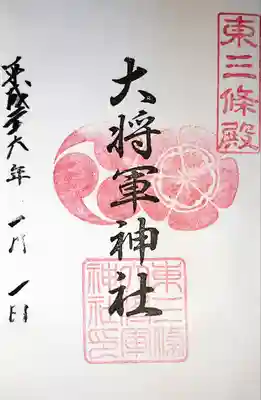 東三條殿
大将軍神社
平成二十六年 一月 一日
東三條
大将軍
神社印